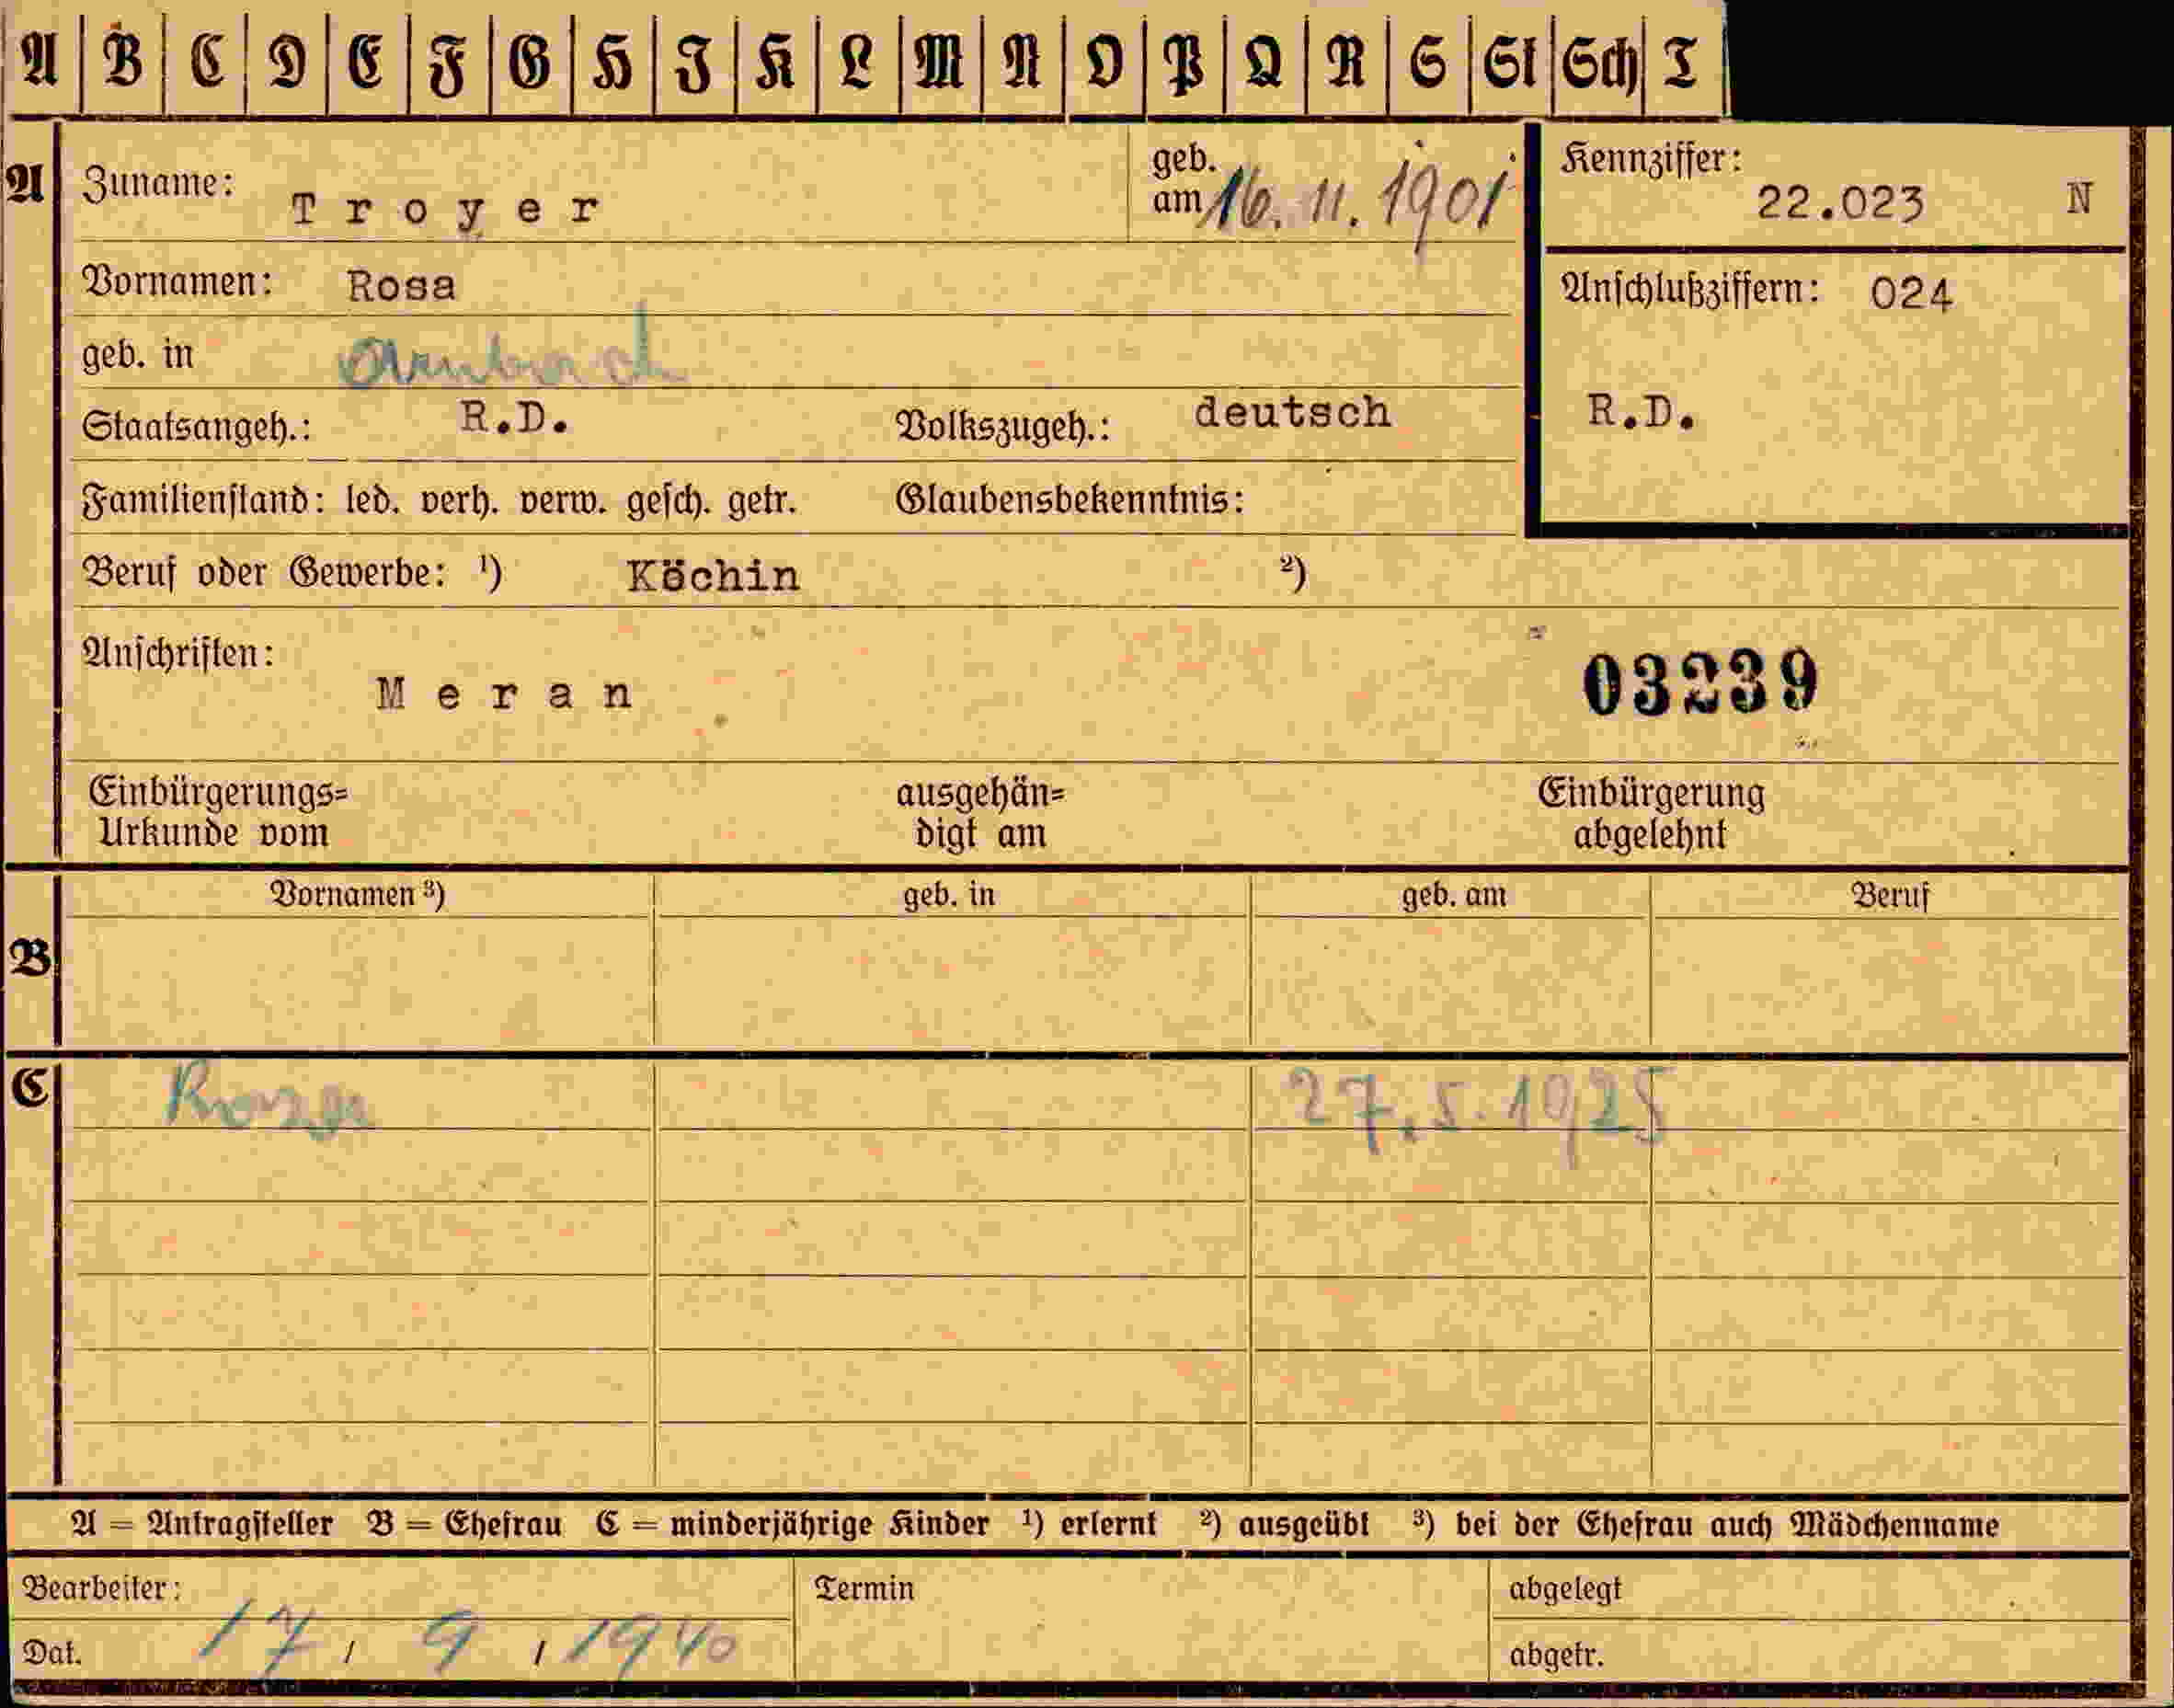 A B C D E F G H I K L M N O P Q R S St Sch T
A
Zuname: Troyer
geb. am 16. 11. 1901
Kennziffer: 22.023 N
Vornamen: Rosa
Anschlußziffern: 024
geb. in
Staatsangeh.: R.D. Volkszugeh.: deutsch
R.D.
Familienstand: led. verh. verw. gesch. getr. Glaubensbekenntnis:
Beruf oder Gewerbe: ¹) Köchin ²)
Anschriften:
Meran
03239
Einbürgerungs= ausgehän= Einbürgerung
Urkunde vom digt am abgelehnt
Vornamen ³) geb. in geb. am Beruf
B
C 27.5.1925
A = Antragsteller B = Ehefrau C = minderjährige Kinder ¹) erlernt ²) ausgeübt ³) bei der Ehefrau auch Mädchenname
Bearbeiter: Termin abgelegt
Dat. 17 / 9 / 1940 abgetr.